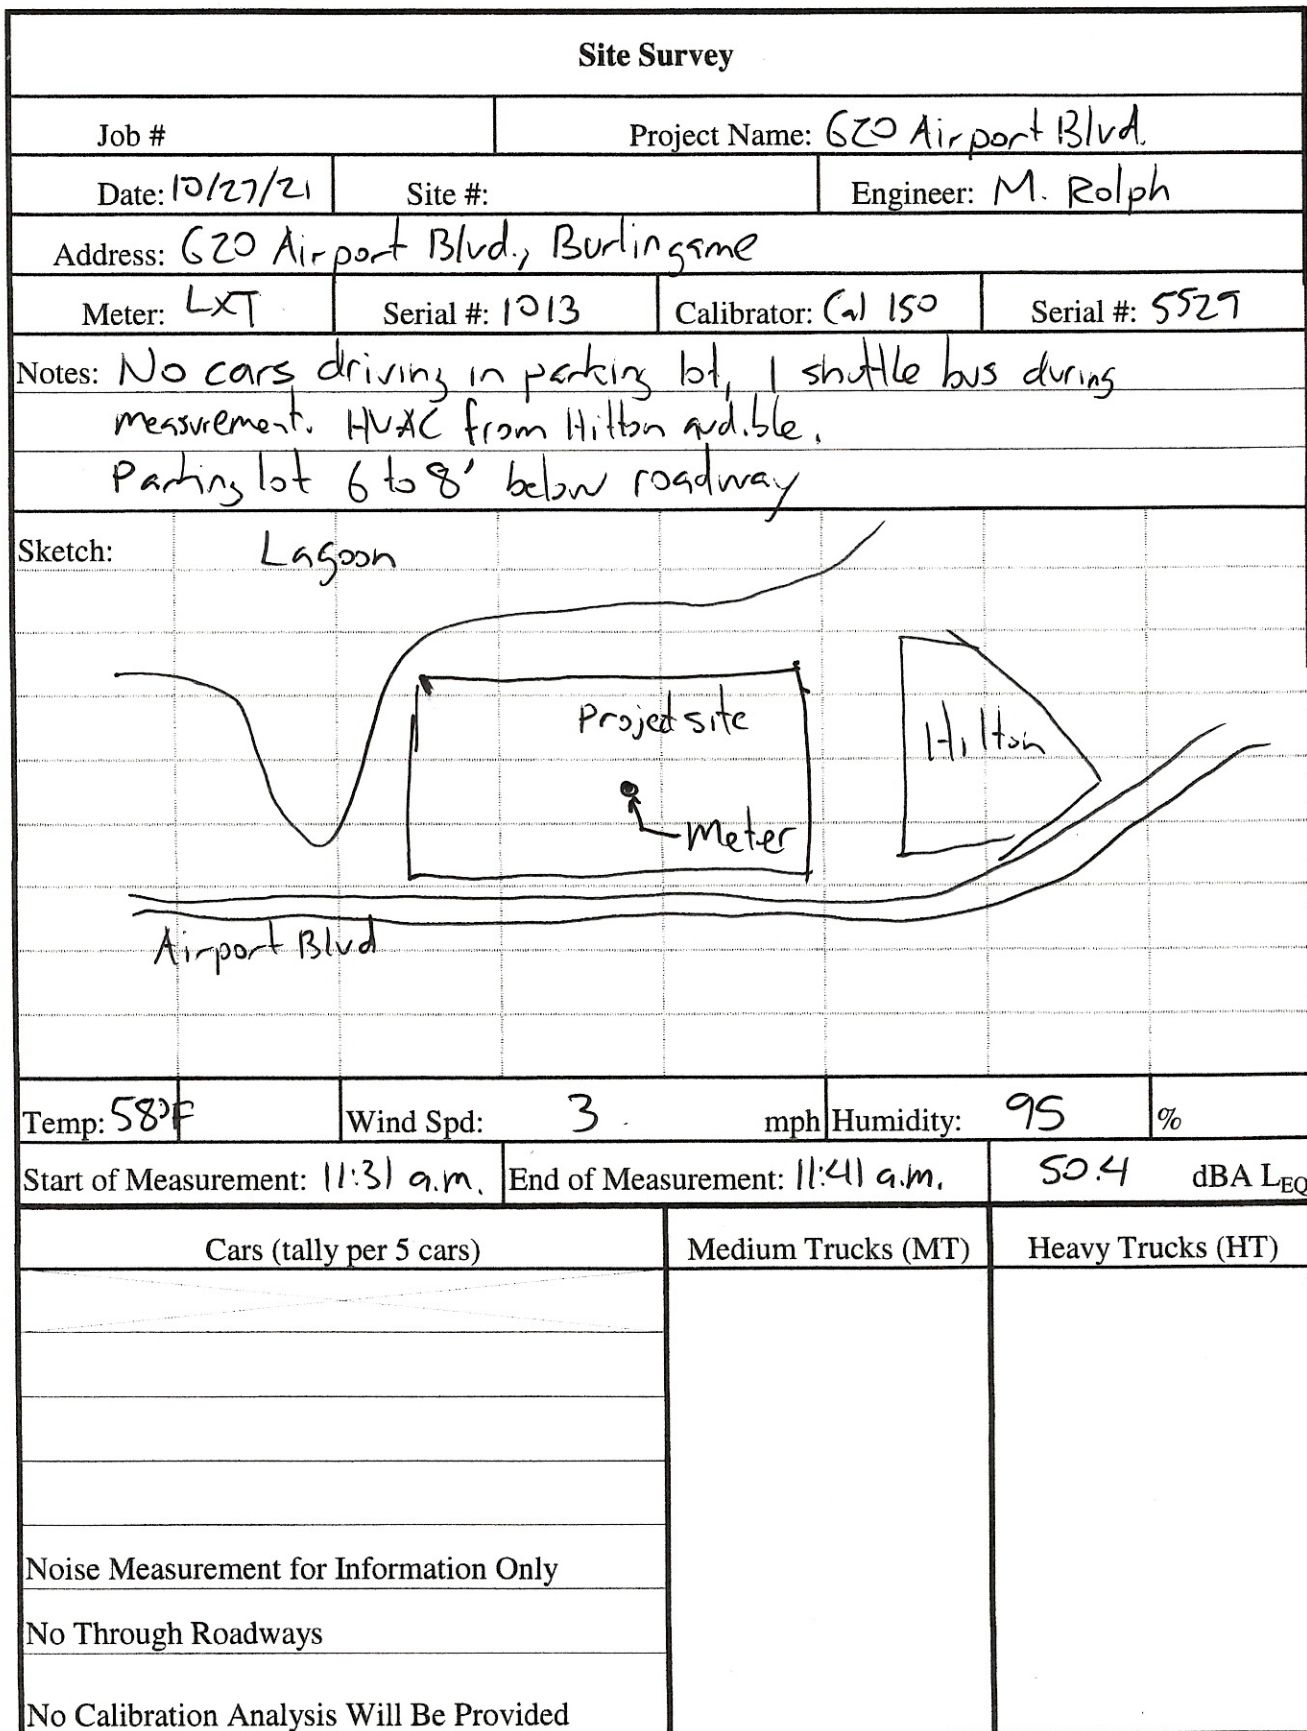 Site Survey
Job # Project Name: 620 Airport Blvd.
Date: 10/27/21 Site #: Engineer: M. Rolph
Address: 620 Airport Blvd., Burlingame
Meter: LXT Serial #: 1013 Calibrator: Cal 150 Serial #: 5529
Notes: No cars driving in parking lot, 1 shuttle bus during
measurement. HVAC from Hilton audible.
Parking lot 6 to 8' below roadway
Sketch: Lagoon
Project site
Hilton
Meter
Airport Blvd
Temp: 58°F Wind Spd: 3 mph Humidity: 95 %
Start of Measurement: 11:31 a.m. End of Measurement: 11:41 a.m. 50.4 dBA LEQ
Cars (tally per 5 cars) Medium Trucks (MT) Heavy Trucks (HT)
Noise Measurement for Information Only
No Through Roadways
No Calibration Analysis Will Be Provided